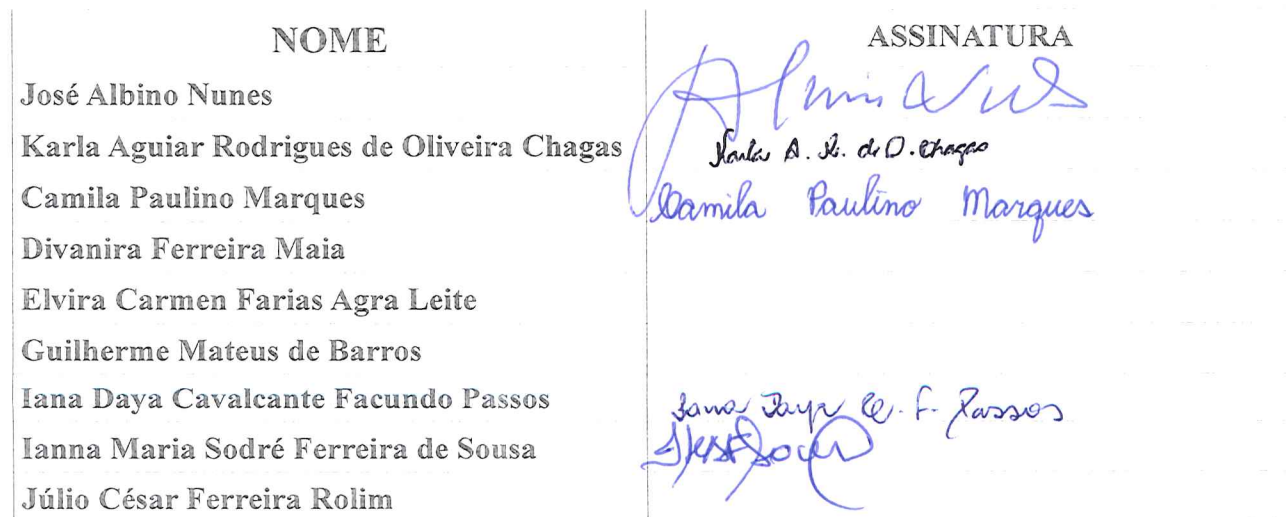 NOME ASSINATURA
José Albino Nunes
Karla Aguiar Rodrigues de Oliveira Chagas Karla A. R. de O. Chagas
Camila Paulino Marques Camila Paulino Marques
Divanira Ferreira Maia
Elvira Carmen Farias Agra Leite
Guilherme Mateus de Barros
Iana Daya Cavalcante Facundo Passos Iana Daya C. F. Passos
Ianna Maria Sodré Ferreira de Sousa
Júlio César Ferreira Rolim